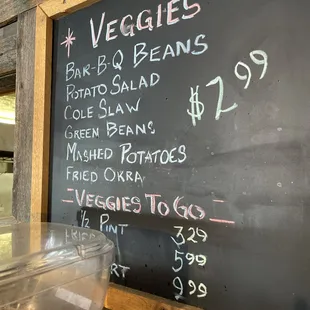 VEGGIES
BAR-B-Q BEANS
POTATO SALAD
COLE SLAW
GREEN BEANS
MASHED POTATOES
FRIED OKRA
$2.99
VEGGIES TO GO
½ PINT 3.29
5.99
9.99